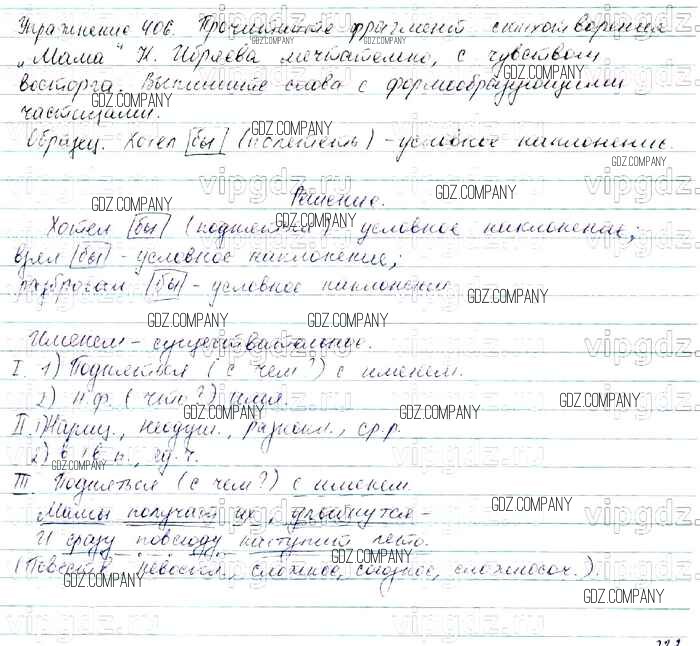 Упражнение 406. Прочитайте фрагмент стихотворения
„Мама“ И. Ибряева мечтательно, с чувством
восторга. Выпишите слова с формообразующими
частицами.
Образец. Хотел бы (исплетать) – условное наклонение.
Решение.
Хотел бы (подняться) – условное наклонение;
взял бы – условное наклонение;
разбросал бы – условное наклонение
Именем – существительное.
I. 1) Подняться (с чем?) с именем.
2) н.ф. (что?) имя.
II. 1) Нариц., неодуш., разноскл., ср.р.
2) в ед.ч.
III. Подняться (с чем?) с именем.
Мамы получат их, улыбнутся –
И сразу повсюду наступит лето.
(Повеств., невоскл., сложное, союзное, сложносоч.).
GDZ.COMPANY
vipgdz.ru